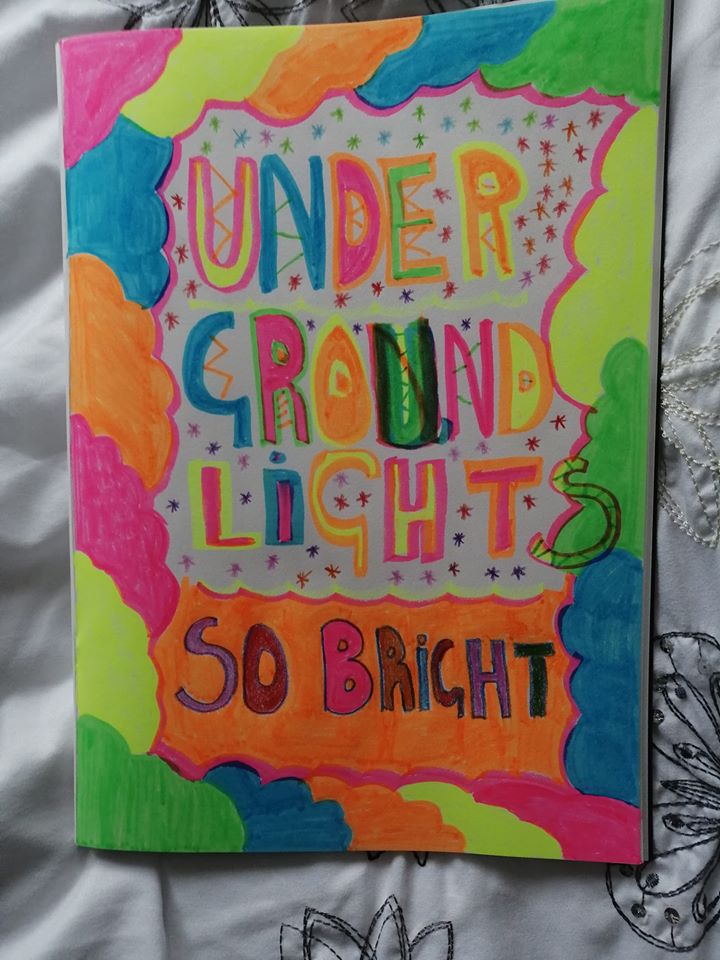 UNDER
GROUND
LiGHTS
SO BRiGHT